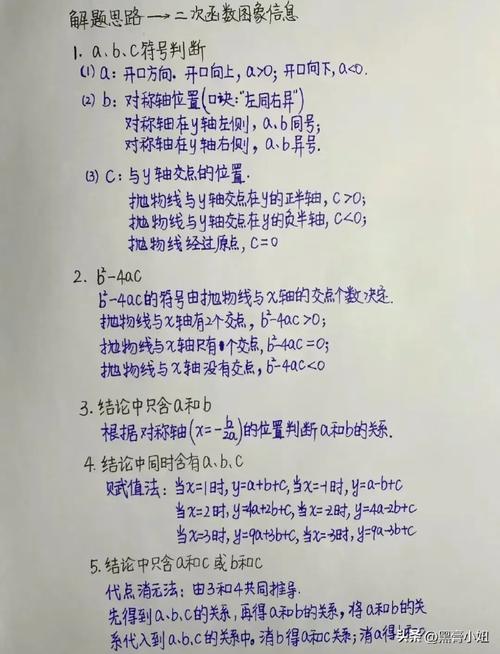 解题思路→二次函数图象信息
1. a、b、c符号判断
(1) a：开口方向. 开口向上, a>0；开口向下, a<0.
(2) b：对称轴位置(口诀："左同右异")
对称轴在y轴左侧, a、b同号；
对称轴在y轴右侧, a、b异号.
(3) c：与y轴交点的位置.
抛物线与y轴交点在y的正半轴, c>0；
抛物线与y轴交点在y的负半轴, c<0；
抛物线经过原点, c=0
2. b²-4ac
b²-4ac的符号由抛物线与x轴的交点个数决定.
抛物线与x轴有2个交点, b²-4ac>0；
抛物线与x轴只有1个交点, b²-4ac=0；
抛物线与x轴没有交点, b²-4ac<0
3. 结论中只含a和b
根据对称轴(x=-b/2a)的位置判断a和b的关系.
4. 结论中同时含有a、b、c
赋值法：当x=1时, y=a+b+c, 当x=-1时, y=a-b+c
当x=2时, y=4a+2b+c, 当x=-2时, y=4a-2b+c
当x=3时, y=9a+3b+c, 当x=-3时, y=9a-3b+c
5. 结论中只含a和c或b和c
代点消元法：由3和4共同推导.
先得到a、b、c的关系, 再得a和b的关系, 将a和b的关
系代入到a、b、c的关系中。消b得a和c关系；消a得
头条 @黑膏小姐